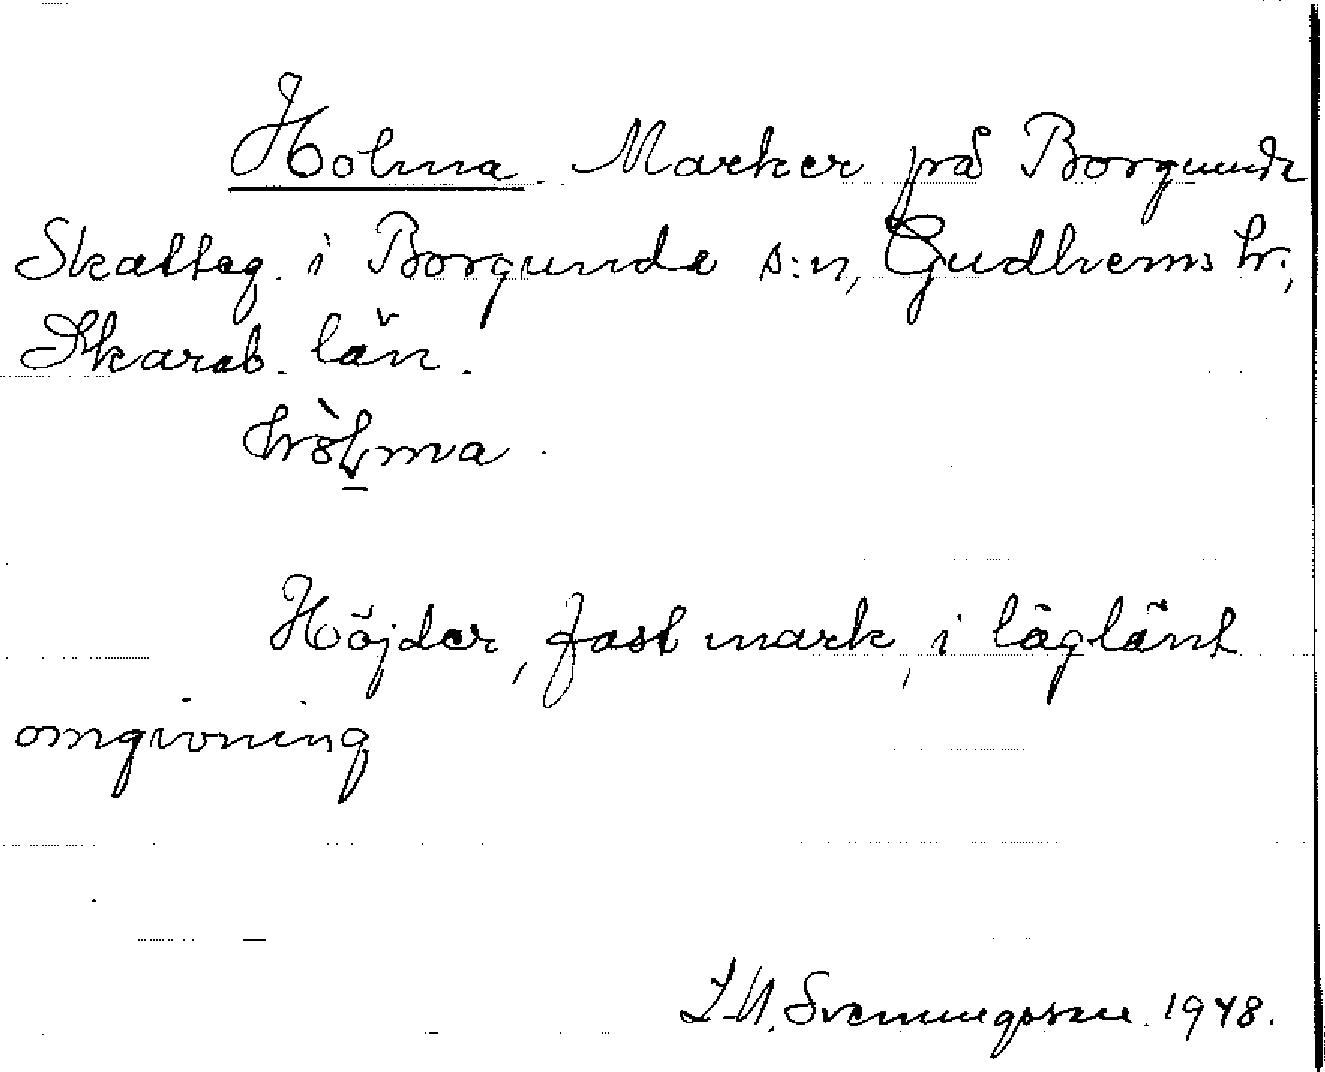 Holma. Marker på Borgunda
Skatteg. i Borgunda s:n, Gudhems hr.,
Skarab. län.
hòlma.
Höjder, fast mark, i låglänt
omgivning
I. M. Svenungsson. 1948.